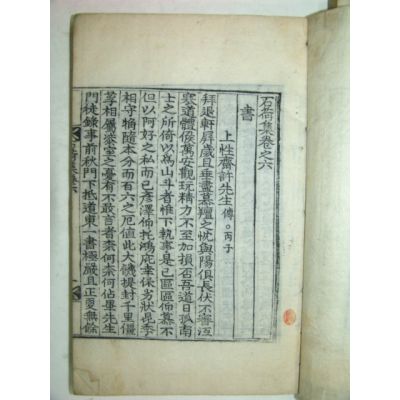 石荷集卷之六
書
上性齋許先生傳○丙子
拜退軒屛歲且垂盡慕羶之忱與陽俱長伏不審沍
寒道體候萬安觀玩精力不至加損否吾道日孤南
士之所倚以爲山斗者惟下執事是已區區伸慕不
但以阿好之私而已彦澤伯托鴻庇幸保劣狀是季
相守隨本分而百六之厄値此大饑提封千里僵
莩相屬嫠室之憂有不敢言者柰何柰何佔畢先生
門徒錄事前秋門下抵道東一書極嚴且正更無餘